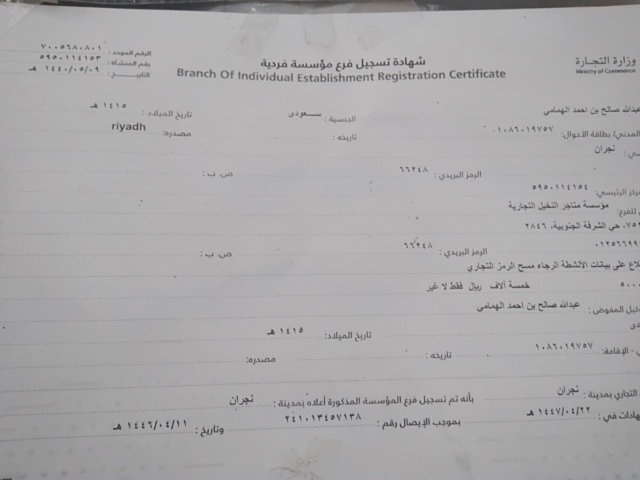 وزارة التجارة
Ministry of Commerce
شهادة تسجيل فرع مؤسسة فردية
Branch Of Individual Establishment Registration Certificate
الرقم الموحد : ٧٠٠٥٦٨٠٨٠١
رقم المنشأة : ٥٩٥٠١١٤١٥٣
التاريخ : ١٤٤٠/٠٥/٠٩ هـ
عبدالله صالح بن احمد الهمامي الجنسية : سعودى تاريخ الميلاد: ١٤١٥ هـ
المدني/ بطاقة الأحوال: ٠١٠٨٦٠١٩٧٥٧ تاريخه : مصدره: riyadh
نجران
الرمز البريدي : ٦٦٢٤٨ ص. ب :
مركز الرئيسي: ٥٩٥٠١١٤١٥٤
للفرع: مؤسسة متاجر النخيل التجارية
حي الشرفة الجنوبية، ٢٨٤٦
الرمز البريدي : ٦٦٢٤٨ ص. ب :
على بيانات الأنشطة الرجاء مسح الرمز التجاري
خمسة آلاف ريال فقط لا غير
المفوض : عبدالله صالح بن احمد الهمامي
تاريخ الميلاد: ١٤١٥ هـ
الإقامة: ١٠٨٦٠١٩٧٥٧ تاريخه : مصدره:
التجاري بمدينة : نجران بأنه تم تسجيل فرع المؤسسة المذكورة أعلاه بمدينة : نجران
في : ١٤٤٧/٠٤/٢٢ هـ بموجب الإيصال رقم : ٢٤١٠١٣٤٥٧١٣٨ وتاريخ : ١٤٤٦/٠٤/١١ هـ